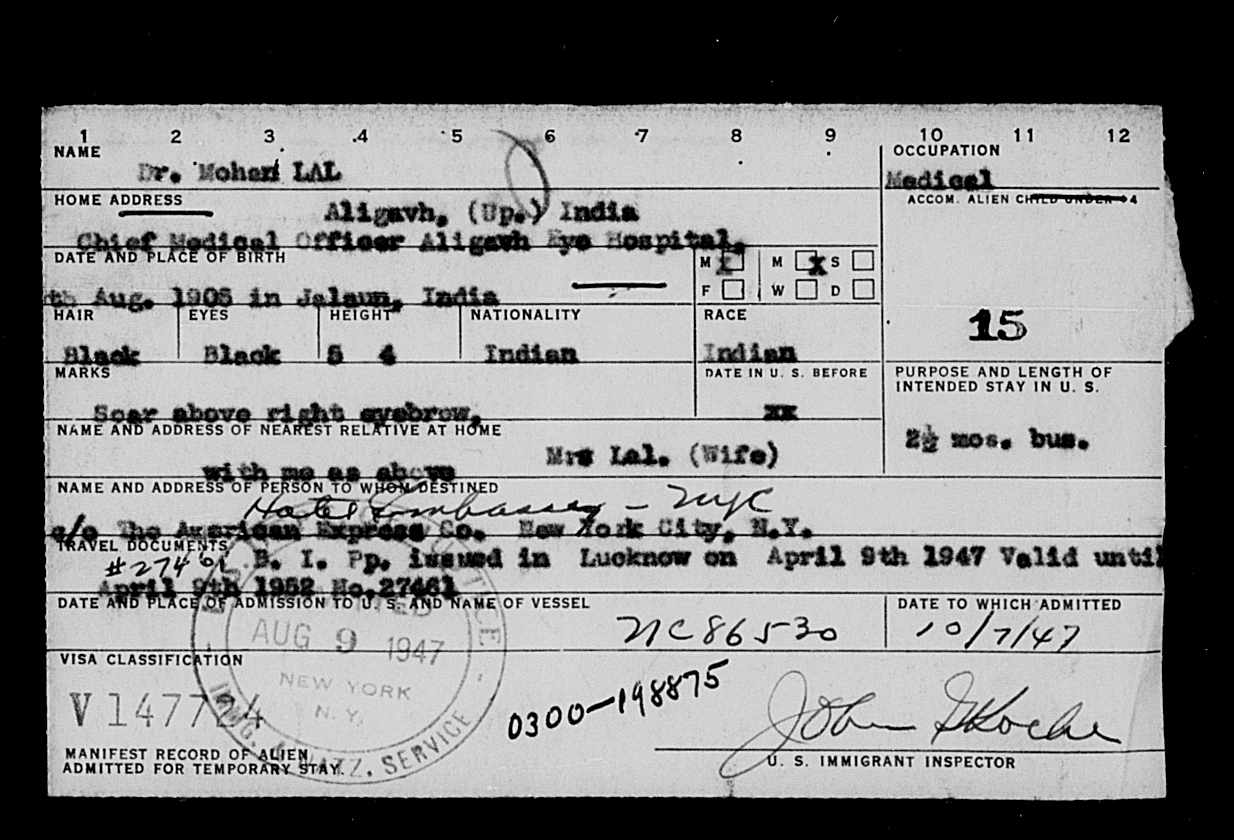 1 2 3 4 5 6 7 8 9 10 11 12
NAME OCCUPATION
Dr. Mohan LAL Medical
HOME ADDRESS ACCOM. ALIEN CHILD UNDER 14
Aligavh, (Up.) India
Chief Medical Officer Aligavh Eye Hospital,
DATE AND PLACE OF BIRTH M X M X S
th Aug. 1905 in Jalaun, India F W D
15
HAIR EYES HEIGHT NATIONALITY RACE
Black Black 5 4 Indian Indian
MARKS DATE IN U. S. BEFORE PURPOSE AND LENGTH OF
INTENDED STAY IN U. S.
Scar above right eyebrow, xx
2½ mos. bus.
NAME AND ADDRESS OF NEAREST RELATIVE AT HOME
Mrs Lal. (Wife)
with me as above
NAME AND ADDRESS OF PERSON TO WHOM DESTINED
Hotel Embassy - NYC
c/o The American Express Co. New York City, N.Y.
TRAVEL DOCUMENTS
#27461 B. I. Pp. issued in Lucknow on April 9th 1947 Valid until
April 9th 1952 No.27461
DATE AND PLACE OF ADMISSION TO U. S. AND NAME OF VESSEL DATE TO WHICH ADMITTED
AUG 9 1947 NC86530 10/7/47
VISA CLASSIFICATION
NEW YORK
N. Y.
V 147724 0300-198875
IMMG. & NATZ. SERVICE
MANIFEST RECORD OF ALIEN
ADMITTED FOR TEMPORARY STAY.
U. S. IMMIGRANT INSPECTOR